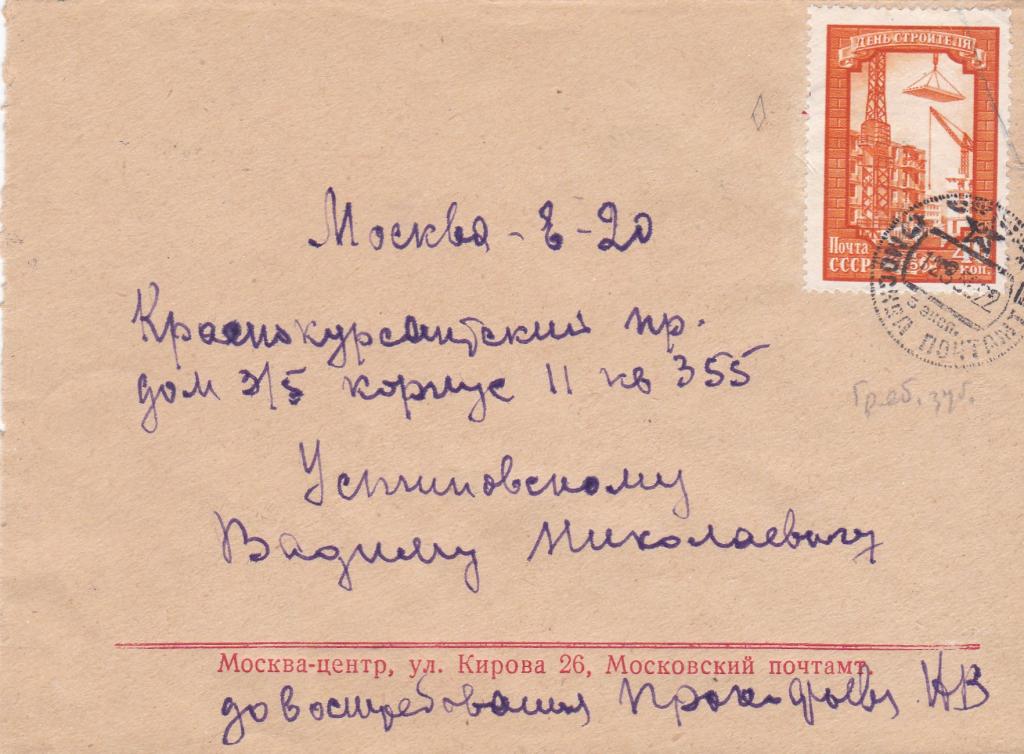 ДЕНЬ СТРОИТЕЛЯ
Почта
СССР
коп.
Москва - Е-20
Краснокурсантский пр.
дом 3/5 корпус 11 кв 355
Устиновскому
Вадиму Николаевичу
Москва-центр, ул. Кирова 26, Московский почтамт.
до востребования Прокофьева НВ